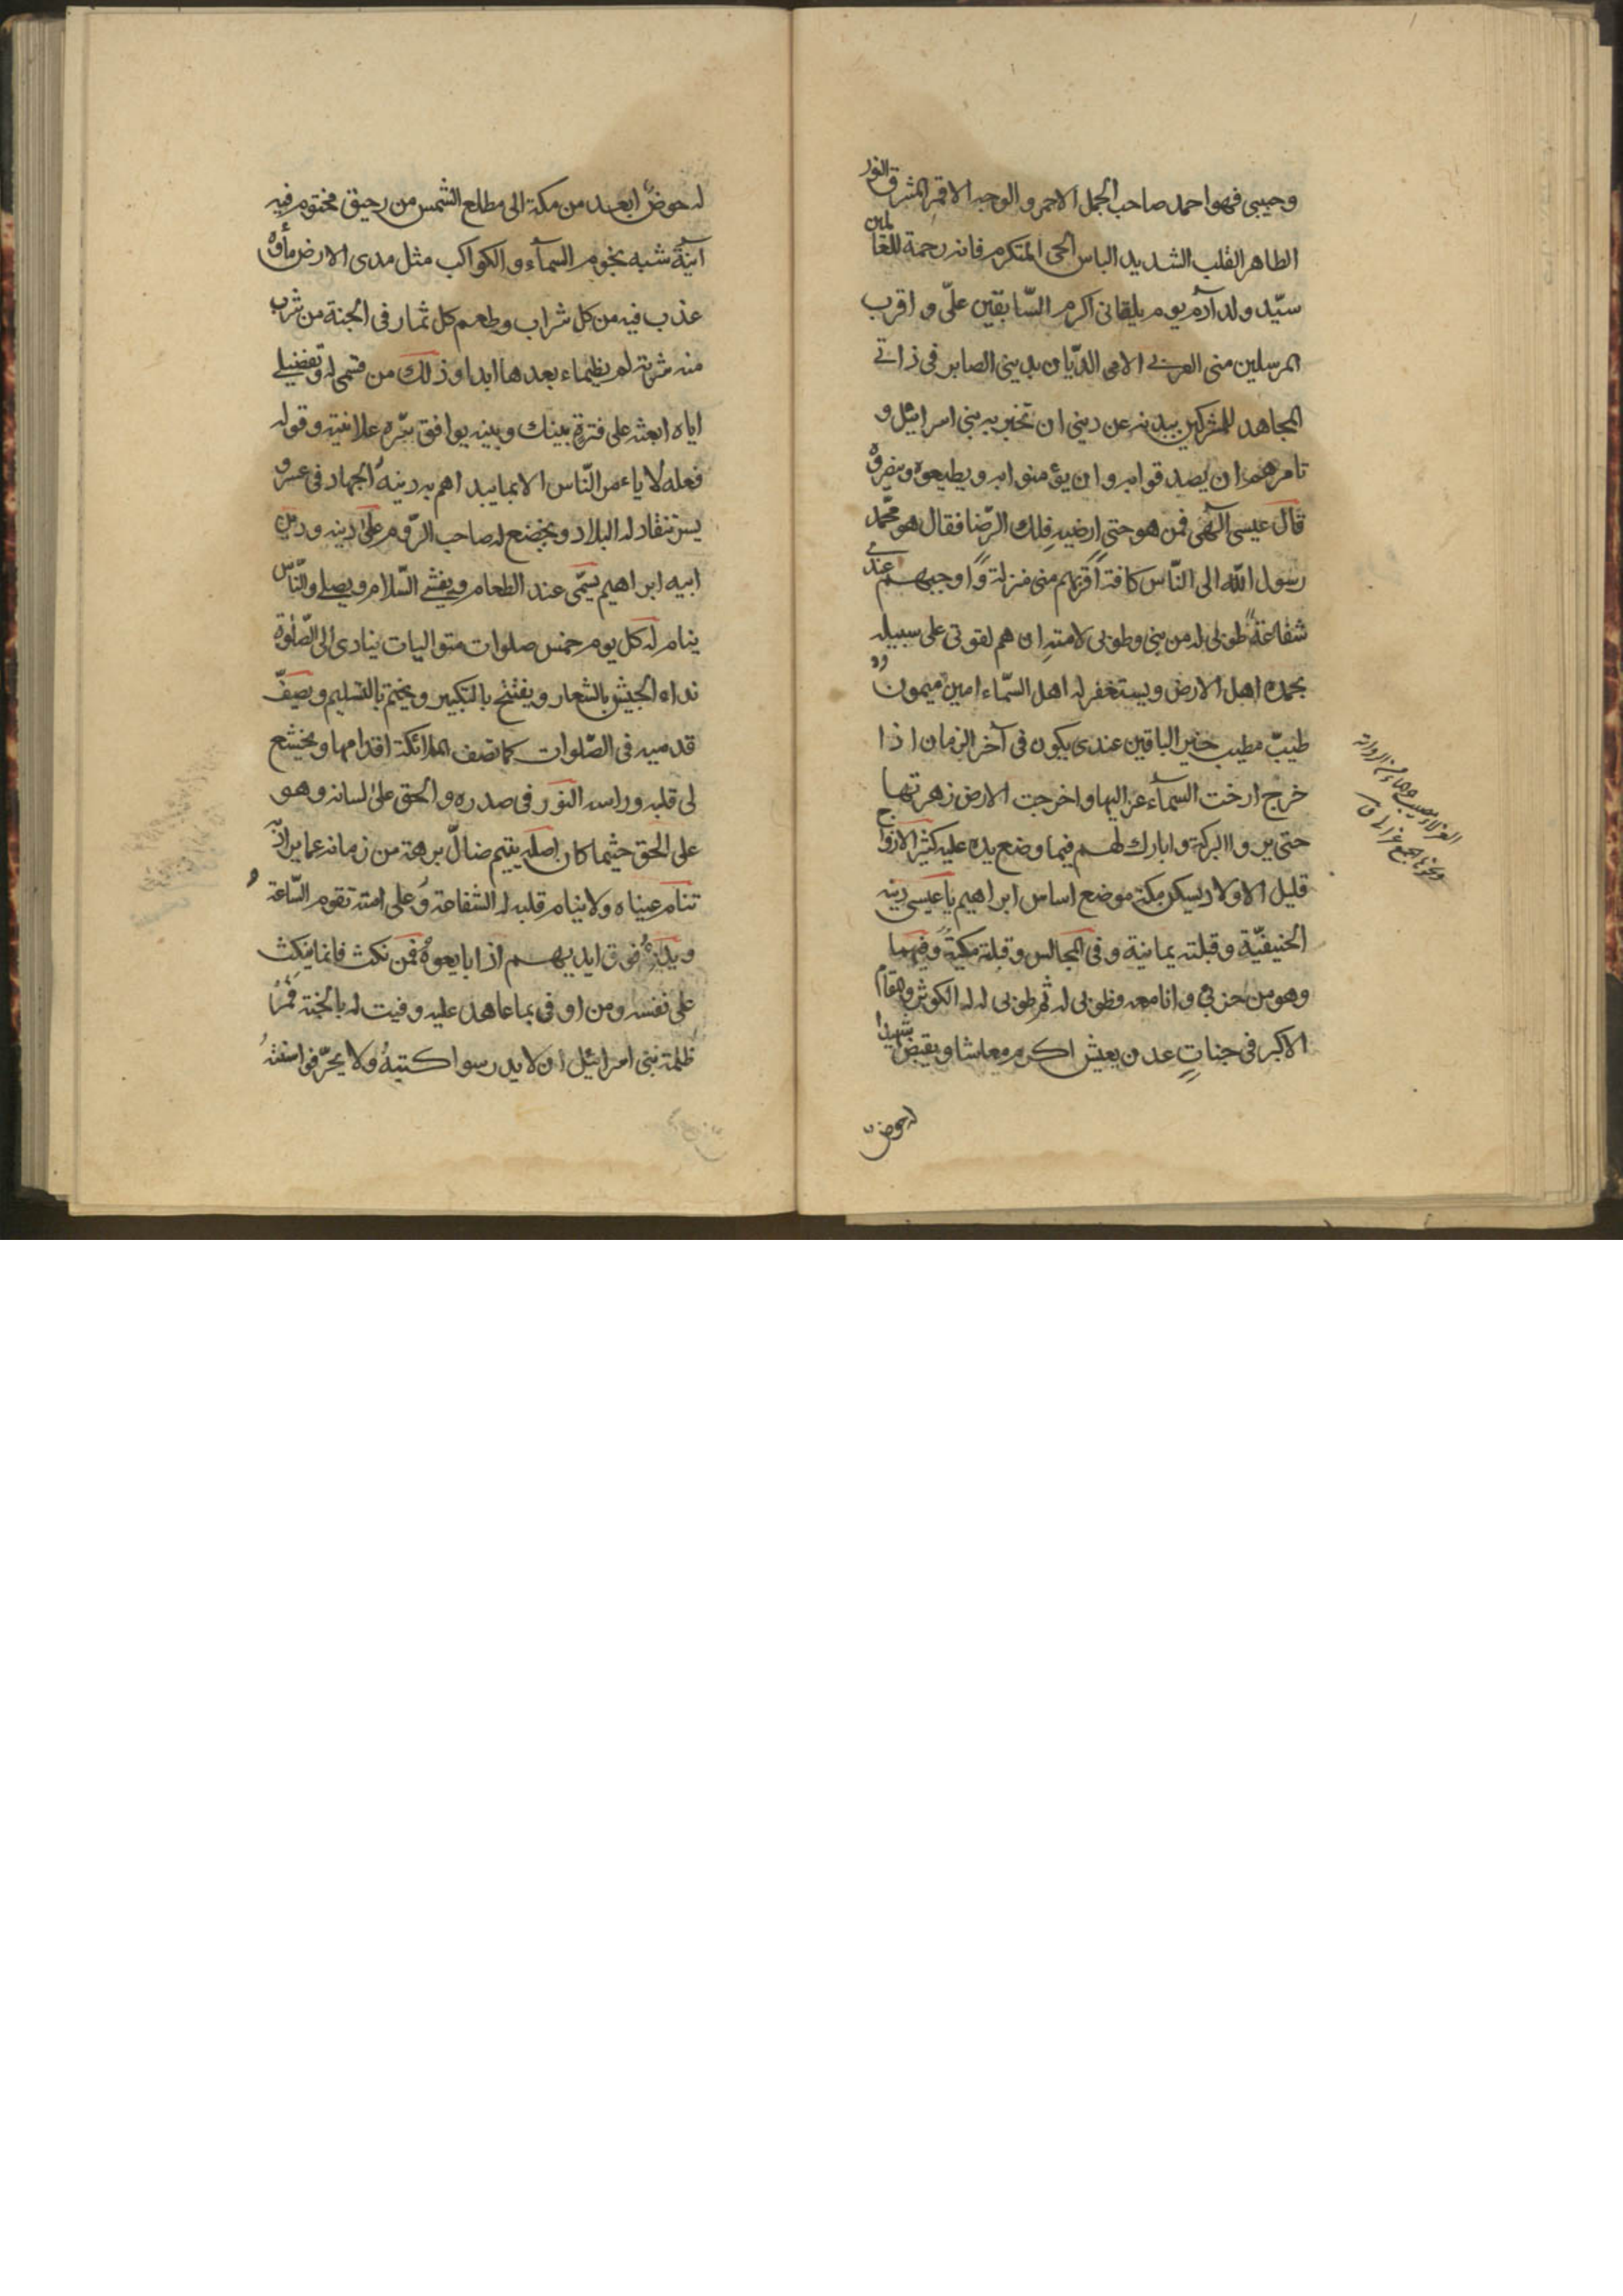 وحبيبي فهو احمد صاحب الجمل الاحمر والوجه الاقمر المشرق النور
الطاهر القلب الشديد الباس الحيي المتكرم فانه رحمة للعالمين
سيّد ولد آدم يوم يلقاني اكرم السّابقين علّى واقرب
المرسلين مني العربي الامي الديّان بديني الصابر في ذاتي
المجاهد للمشركين بيديه عن ديني ان تخبر به بني اسرائيل و
تامرهم ان يصدقوا به وان يؤمنوا به ويطيعوه وينصروه
قال عيسى آلهي فمن هو حتى ارضيه فلك الرّضا فقال هو محمّد
رسول الله الى النّاس كافة اقربهم مني منزلة واوجبهم عندي
شفاعة طوبى له من نبي وطوبى لامته ان هم لقوني على سبيله
يحمده اهل الارض ويستغفر له اهل السّماء امين ميمون
طيّب مطيب خير الباقين عندي يكون في آخر الزمان اذا
خرج ارخت السمآء عزاليها واخرجت الارض زهرتها
حتى يروا البركة وابارك لهم فيما وضع يده عليه كثير الازواج
قليل الاولاد يسكن مكة موضع اساس ابراهيم يا عيسى دينه
الحنيفيّة وقبلته يمانية وفي المجالس وقبلة مكية
وهو من حزبي وانا معه فطوبى له ثم طوبى له له الكوثر ومقام
الاكبر في جنات عدن يعيش اكرم معاشا ويقبض شهيدا
له حوض
له حوض ابعد من مكة الى مطلع الشمس من رحيق مختوم فيه
آنية شبه نجوم السمآء والكواكب مثل مدى الارض مأوه
عذب فيه من كل شراب وطعم كل ثمار في الجنة من شرب
منه شربة لم يظماء بعدها ابدا وذلك من قسمي له وتفضيلي
اياه ابعثه على فترة بينك وبينه يوافق سرّه علانيته وقوله
فعله لا ياءمر النّاس الا بما يبداهم به دينه الجهاد في عسر و
يسر تنقاد له البلاد ويخضع له صاحب الرّوم على دينه ودين
ابيه ابراهيم يسمّى عند الطعام ويفشي السّلام ويصلي والنّاس
ينام له كل يوم خمس صلوات متواليات ينادي الى الصّلوة
نداء الجيش بالشعار ويفتتح بالتكبير ويختم بالتسليم ويصفّ
قدميه في الصّلوات كما تصف الملائكة اقدامها ويخشع
لي قلبه وراسه النور في صدره والحق على لسانه وهو
على الحق حيثما كان اصله يتيم ضالّ برهة من زمانه عما يراد به
تنام عيناه ولا ينام قلبه له الشفاعة وعلى امته تقوم السّاعة
ويدي فوق ايديهم اذا بايعوه فمن نكث فانما ينكث
على نفسه ومن اوفى بما عاهد عليه وفيت له بالجنة فمر
ظلمة بني اسرائيل ان لا يدرسوا كتبه ولا يحرّفوا سنته